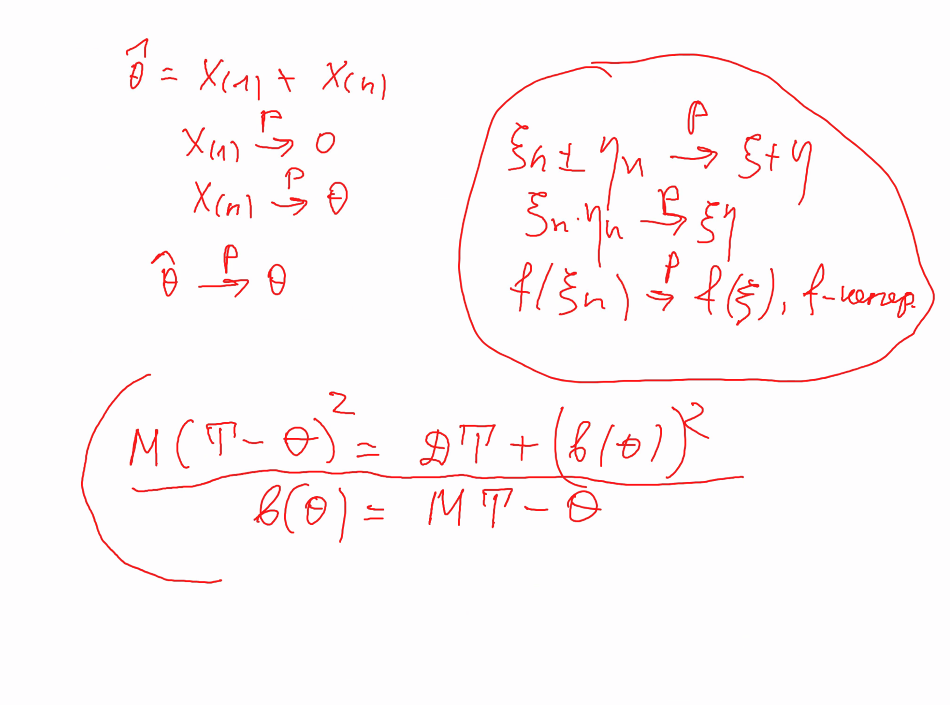 θ̂ = X(1) + X(n)
X(1) →ᴾ 0
X(n) →ᴾ θ
θ̂ →ᴾ θ
ξn ± ηn →ᴾ ξ + η
ξn · ηn →ᴾ ξη
f(ξn) →ᴾ f(ξ), f - непер.
M(T - θ)² = DT + (b(θ))²
b(θ) = MT - θ